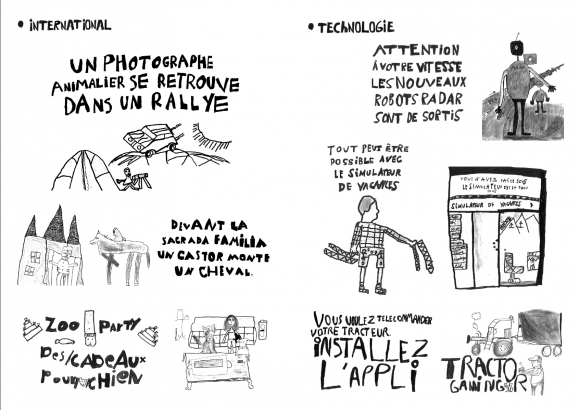 • INTERNATIONAL
UN PHOTOGRAPHE
ANIMALIER SE RETROUVE
DANS UN RALLYE
DEVANT LA
SAGRADA FAMILIA
UN CASTOR MONTE
UN CHEVAL.
ZOO PARTY
DES CADEAUX
POUR CHIEN
• TECHNOLOGIE
ATTENTION
À VOTRE VITESSE
LES NOUVEAUX
ROBOTS RADAR
SONT DE SORTIS
TOUT PEUT ÊTRE
POSSIBLE AVEC
LE SIMULATEUR
DE VACANCES
SIMULATEUR DE VACANCES
VOUS VOULEZ TELECOMMANDER
VOTRE TRACTEUR
INSTALLEZ
L'APPLI
TRACTOR
GAMING